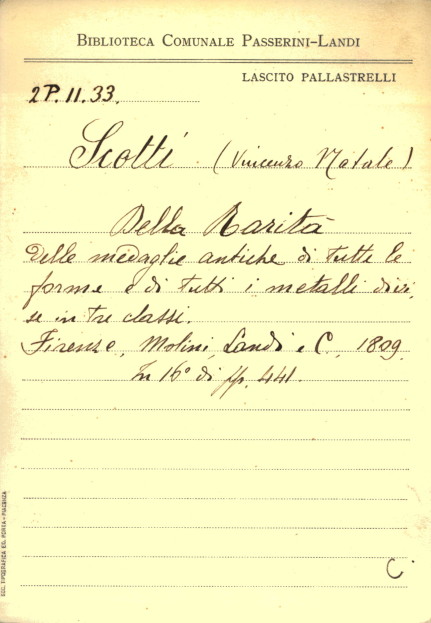 BIBLIOTECA COMUNALE PASSERINI-LANDI
LASCITO PALLASTRELLI
2P.11.33.
Scotti (Vincenzo Natale)
Della Rarità
delle medaglie antiche di tutte le
forme e di tutti i metalli divi,
se in tre classi.
Firenze, Molini, Landi e C., 1809
In 16° di pp. 441.
C
SOC. TIPOGRAFICA ED. PORTA - PIACENZA